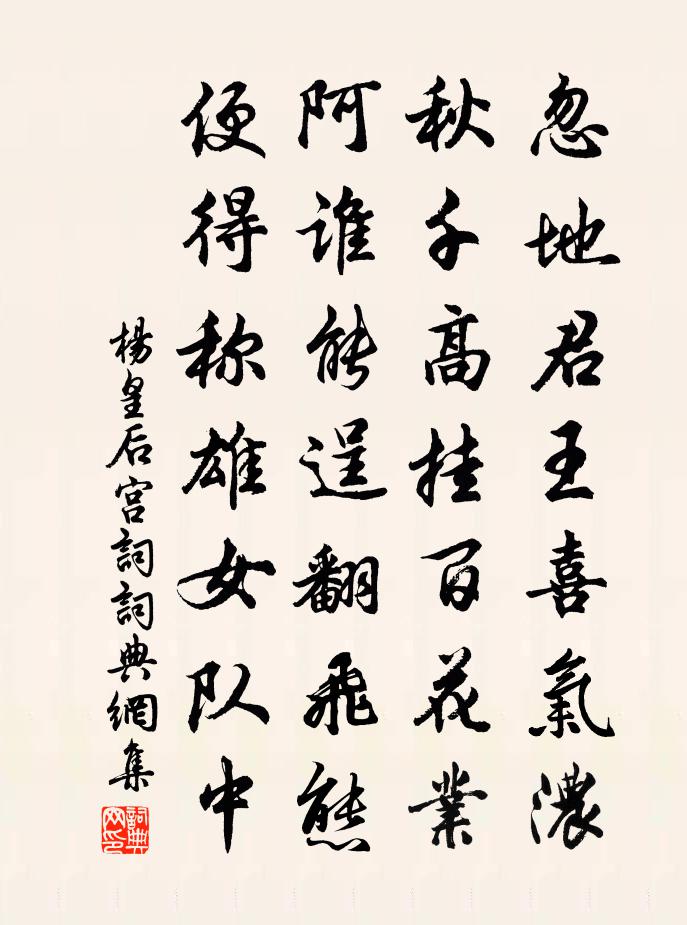 忽地君王喜氣濃
秋千高挂百花業
阿谁能逞翻飛態
便得称雄女队中
楊皇后宫詞詞典網集
詞典网印